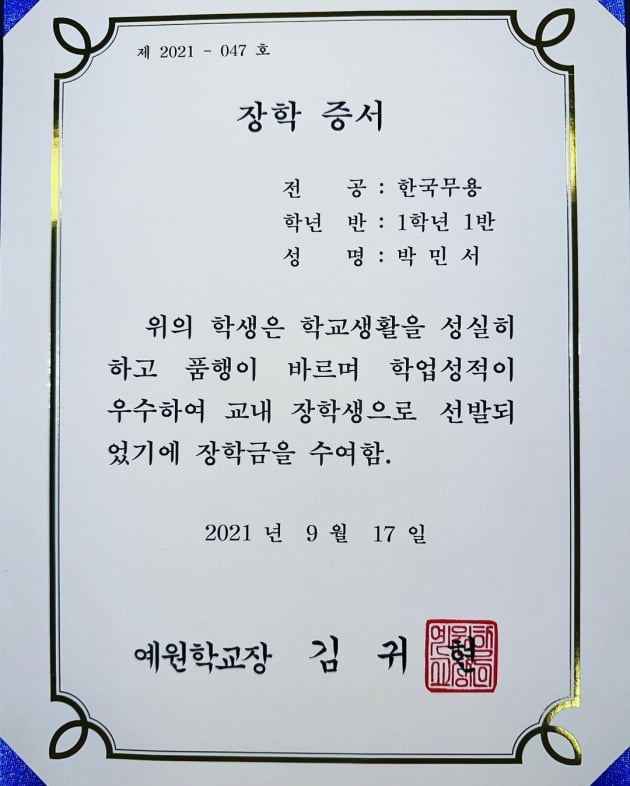 제 2021 - 047 호
장학 증서
전 공 : 한국무용
학년 반 : 1학년 1반
성 명 : 박 민 서
위의 학생은 학교생활을 성실히
하고 품행이 바르며 학업성적이
우수하여 교내 장학생으로 선발되
었기에 장학금을 수여함.
2021 년 9 월 17 일
예원학교장 김 귀 현